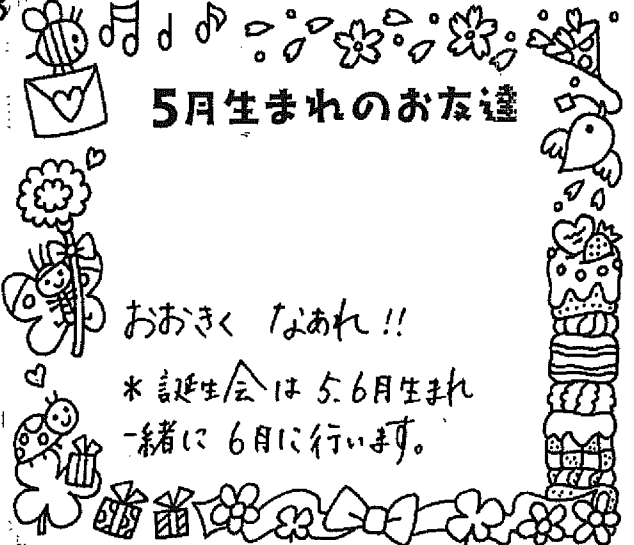 5月生まれのお友達
おおきく なあれ!!
*誕生会は 5.6月生まれ
一緒に 6月に行います。